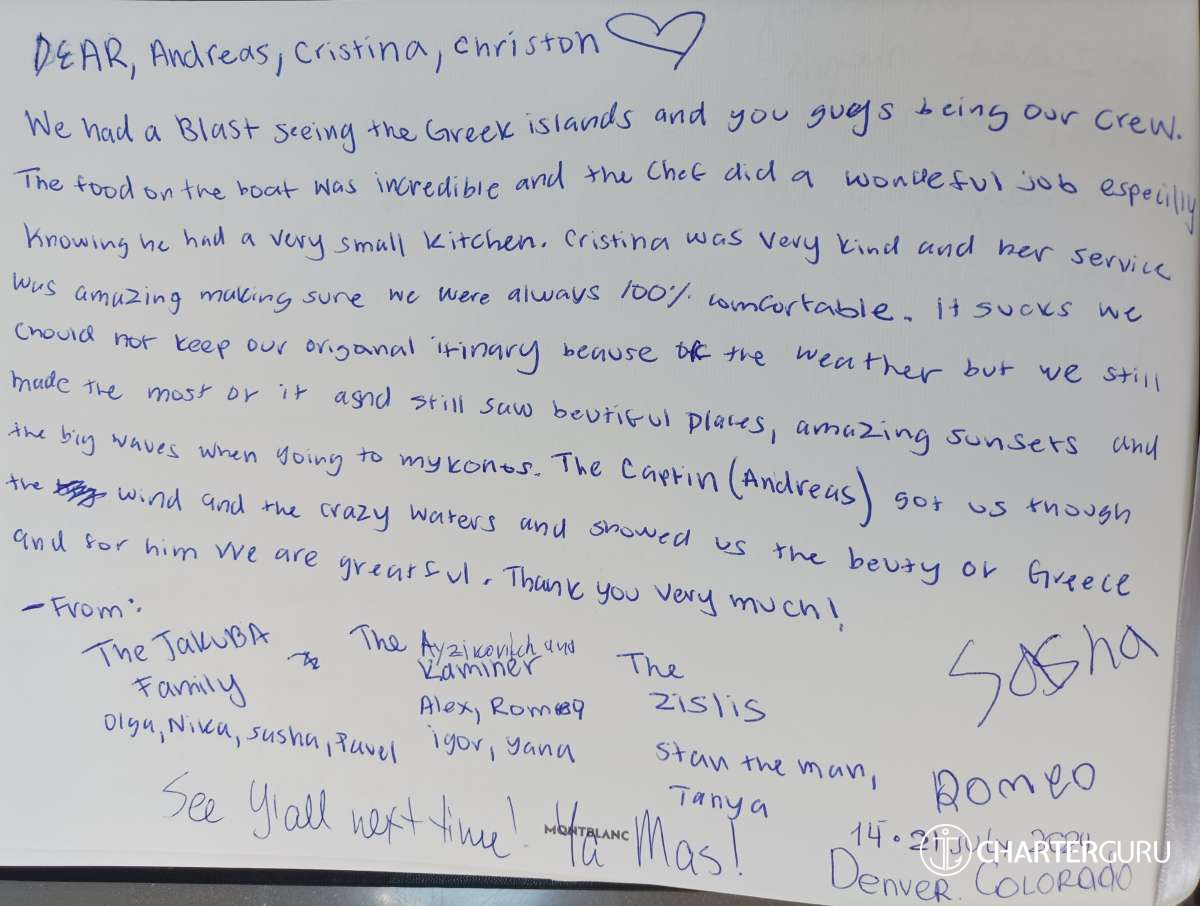 DEAR, Andreas, Cristina, christon
We had a Blast seeing the Greek islands and you guys being our crew.
The food on the boat was incredible and the Chef did a wondeful job especilly
Knowing he had a very small kitchen. Cristina was very kind and her service
was amazing making sure we were always 100% comfortable. it sucks we
chould not keep our origanal itinary beause of the weather but we still
made the most or it asnd still saw beutiful places, amazing sunsets and
the big waves when going to mykonos. The Captin (Andreas) got us though
the wind and the crazy waters and showed us the beuty or Greece
and for him we are greatful. Thank you very much!
- From:
The JAKUBA Family
Olga, Nika, sasha, Pavel
The Ayzikovitch and Kaminer
Alex, Romeo
igor, yana
The Zislis
Stan the man,
Tanya
Sasha
Romeo
See Y'all next time! Ya Mas!
MONTBLANC
14 • 21 July 2024
Denver. COLORADO
CHARTERGURU